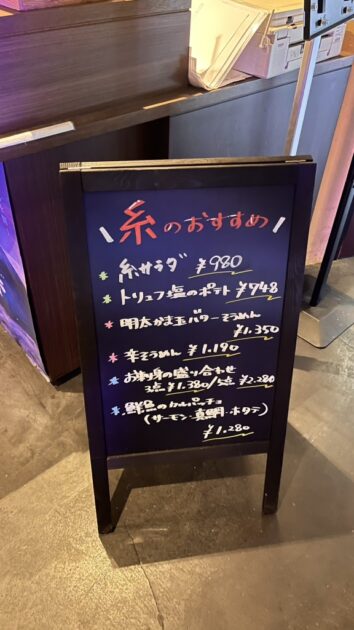 糸のおすすめ
糸サラダ ¥980
トリュフ塩のポテト ¥748
明太かま玉バターそうめん
¥1.350
辛そうめん ¥1.190
お刺身の盛り合わせ
3点 ¥1.380/5点 ¥2.280
鮮魚のカルパッチョ
(サーモン・真鯛・ホタテ)
¥1.280